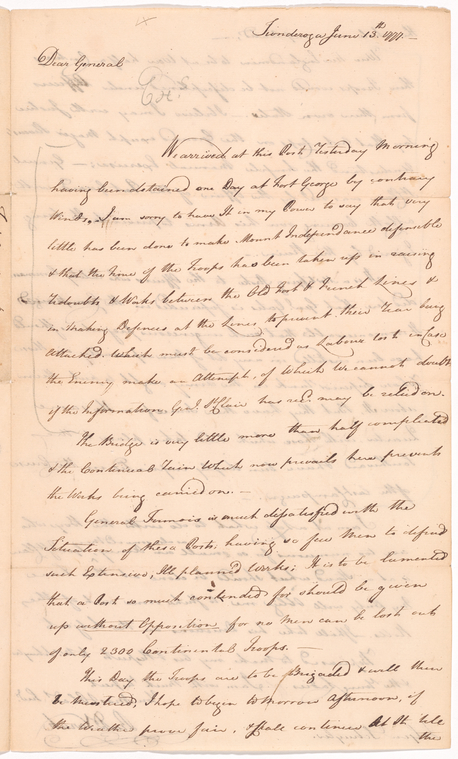 Ticonderoga June 13th 1777.—
Dear General
We arrived at this Post Yesterday Morning
having been detained one Day at Fort George by contrary
Winds, I am sorry to have It in my Power to say that very
little has been done to make Mount Independance defensible
& that the time of the Troops has been taken up in raising
Redoubts & Works between the Old Fort & French Lines &
in making Defences at the Lines to prevent their Rear being
Attacked. Which must be considered as Labour lost in Case
the Enemy make an Attempt, of Which We cannot doubt,
if the Information Genl. St Clair has recd. may be relied on.
The Bridge is very little more than half compleated
& the Continual Rain Which now prevails here prevents
the Works being carried on.—
General Fermois is much dissatisfied with the
Situation of these Posts, having so few Men to defend
such Extensive, Ill plann'd Works; It is to be lamented
that a Post so much contended for should be given
up without Opposition for no Men can be lost out
of only 2300 Continental Troops.—
This Day the Troops are to be Brigaded & will then
be mustered, I hope to begin to Morrow Afternoon, if
the Weather prove fair, & shall continue At It till
the